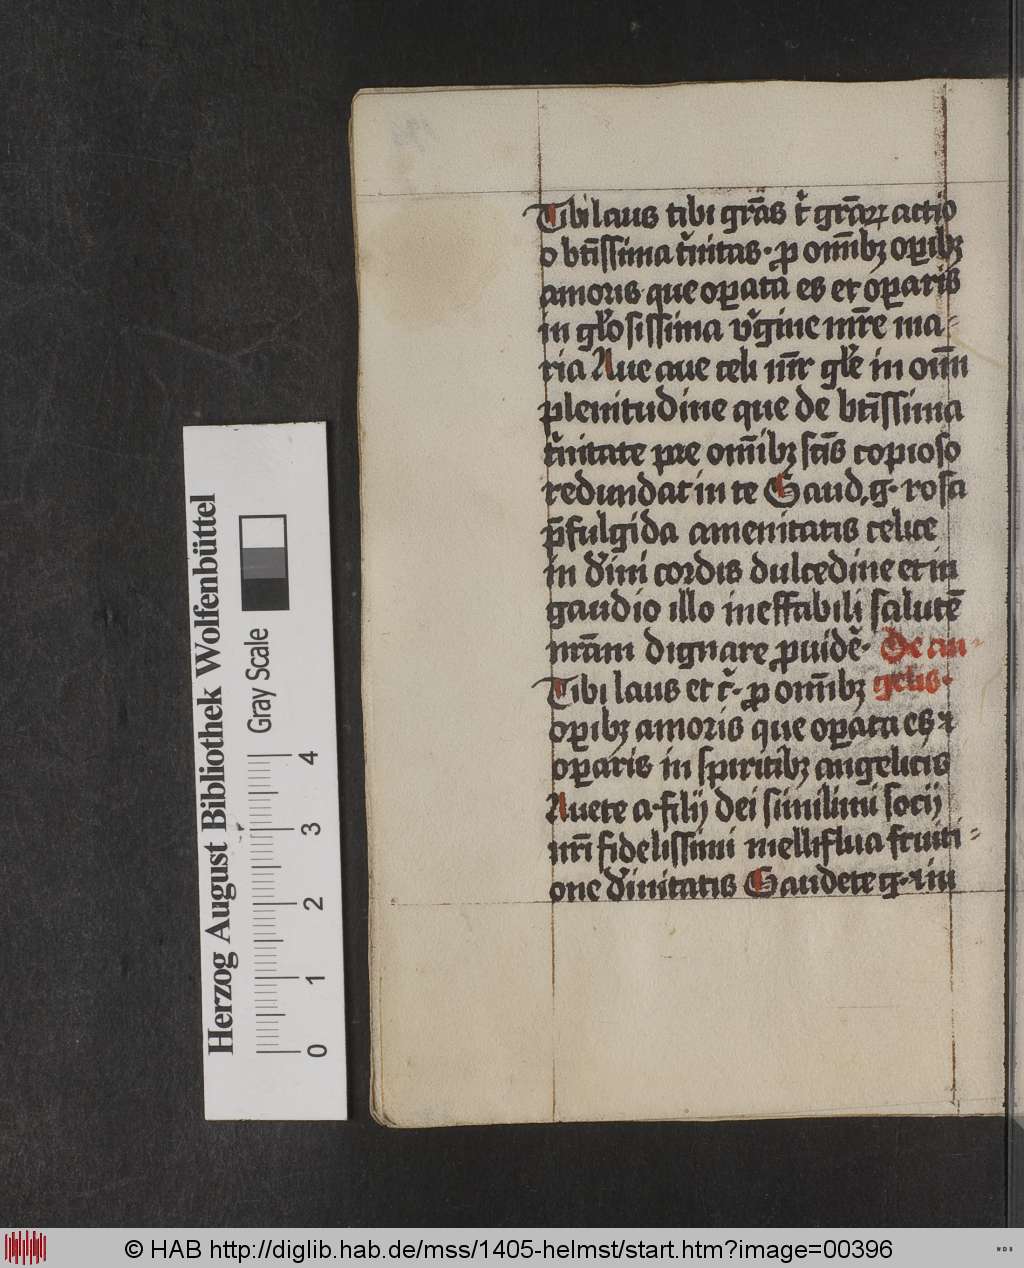 Tibi laus tibi grās t̉ grāꝝ actio
o btīssima t̉nitas · ꝓ om̄ibꝫ oꝑibꝫ
amoris que oꝑata es et oꝑaris
in gl̓osissima v̓gine mr̄e ma⸗
ria Aue aue celi mr̄r gl̓e in om̄i
plenitudine que de btīssima
t̉nitate pre om̄ibꝫ sc̄is copioso
redundat in te Gaud, g · rosa
p̄fulgida amenitatis celice
in d̓ini cordis dulcedine et in
gaudio illo ineffabili salutē
nr̄am dignare ꝓuidē · De an⸗
Tibi laus et t̉ · ꝓ om̄ibꝫ gelis ·
oꝑibꝫ amoris que oꝑata es ⁊
oꝑaris in spiritibꝫ angelicis
Auete a · filij dei similimi socij
nr̄i fidelissimi melliflua fruiti⸗
one d̓initatis Gaudete g · ⁊ in
Herzog August Bibliothek Wolfenbüttel
Gray Scale
0 1 2 3 4
© HAB http://diglib.hab.de/mss/1405-helmst/start.htm?image=00396